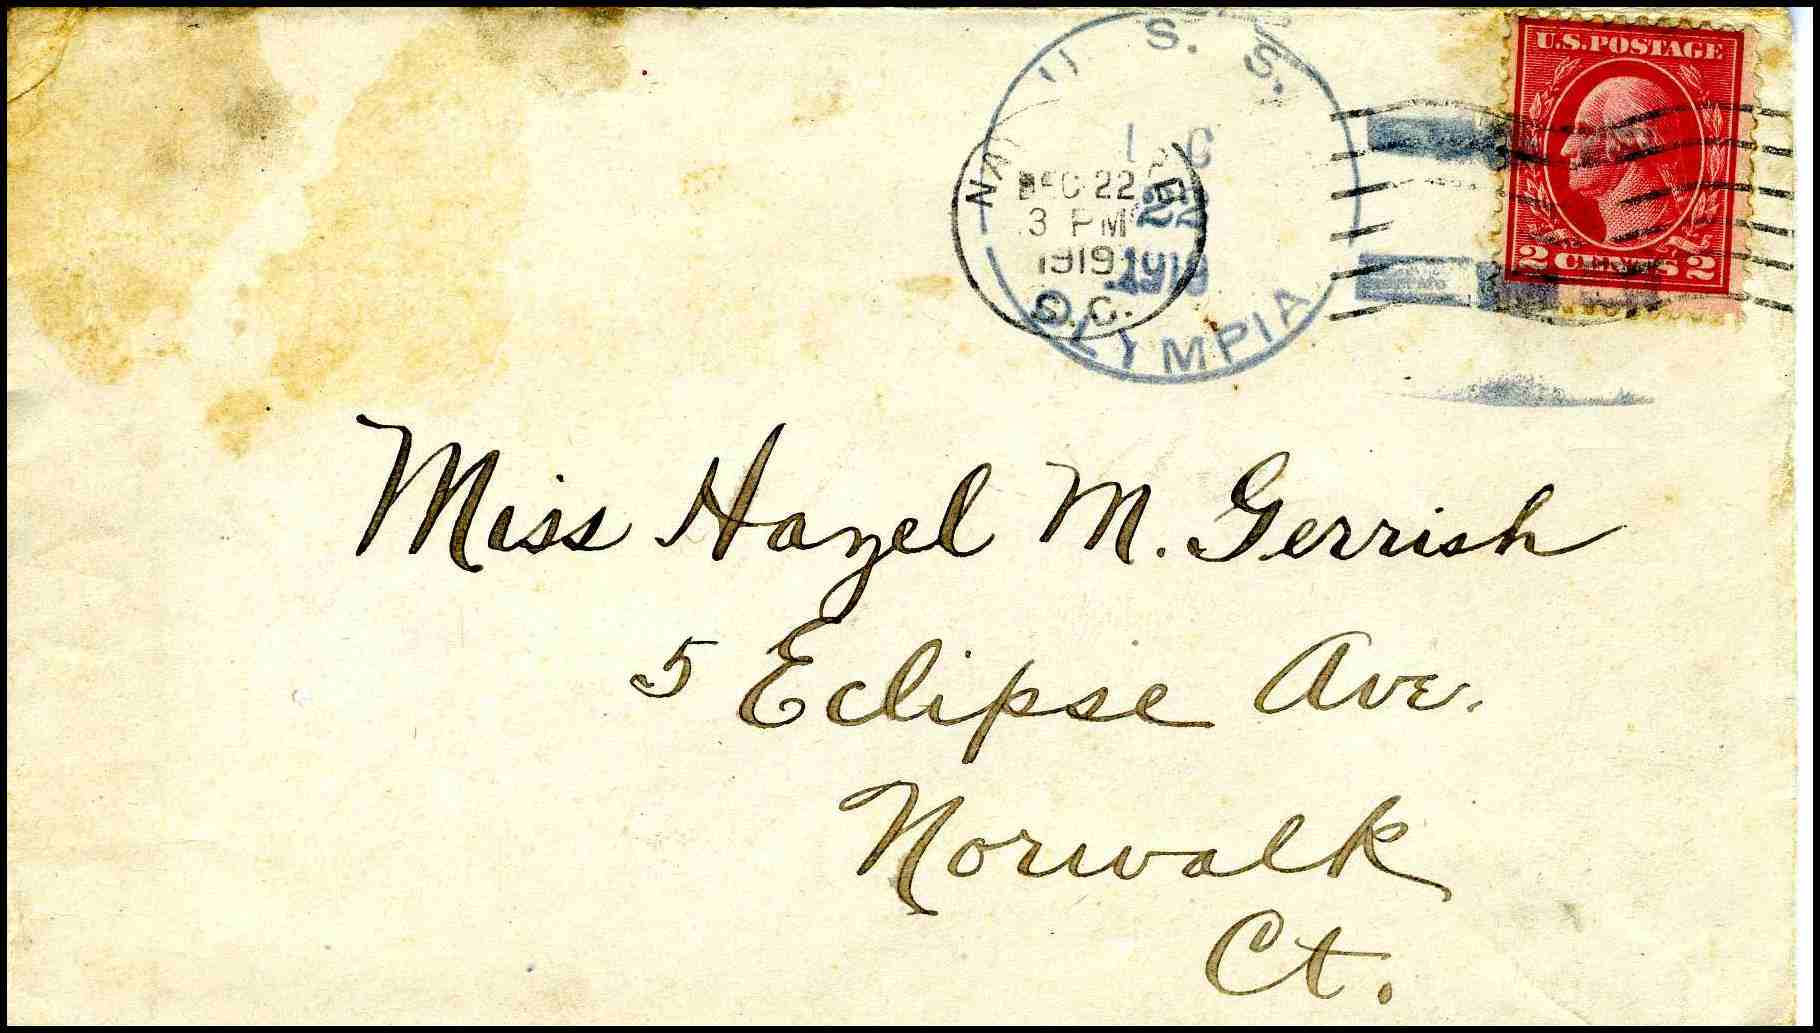 U.S. POSTAGE
2 CENTS 2
U. S. S.
OLYMPIA
22
DEC 22
3 PM
1919
S.C.
Miss Hazel M. Gerrish
5 Eclipse Ave.
Norwalk
Ct.